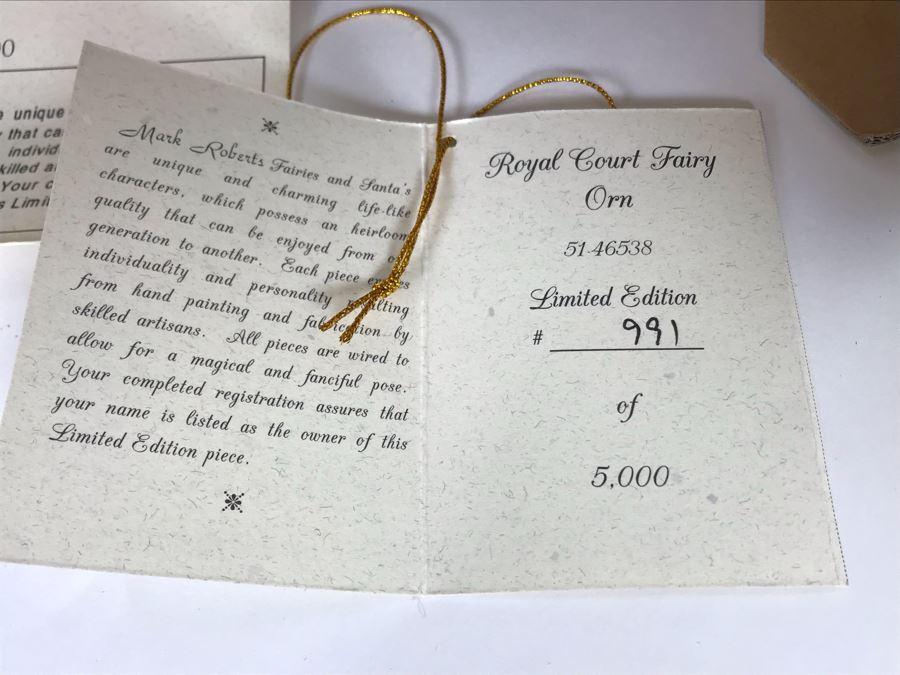 00
e unique
that ca
individ
killed a
Your c
s Limi
Mark Roberts Fairies and Santa's
are unique and charming life-like
characters, which possess an heirloom
quality that can be enjoyed from
generation to another. Each piece
individuality and personality
from hand painting and fabrication by
skilled artisans. All pieces are wired to
allow for a magical and fanciful pose.
Your completed registration assures that
your name is listed as the owner of this
Limited Edition piece.
Royal Court Fairy
Orn
51-46538
Limited Edition
# 991
of
5,000